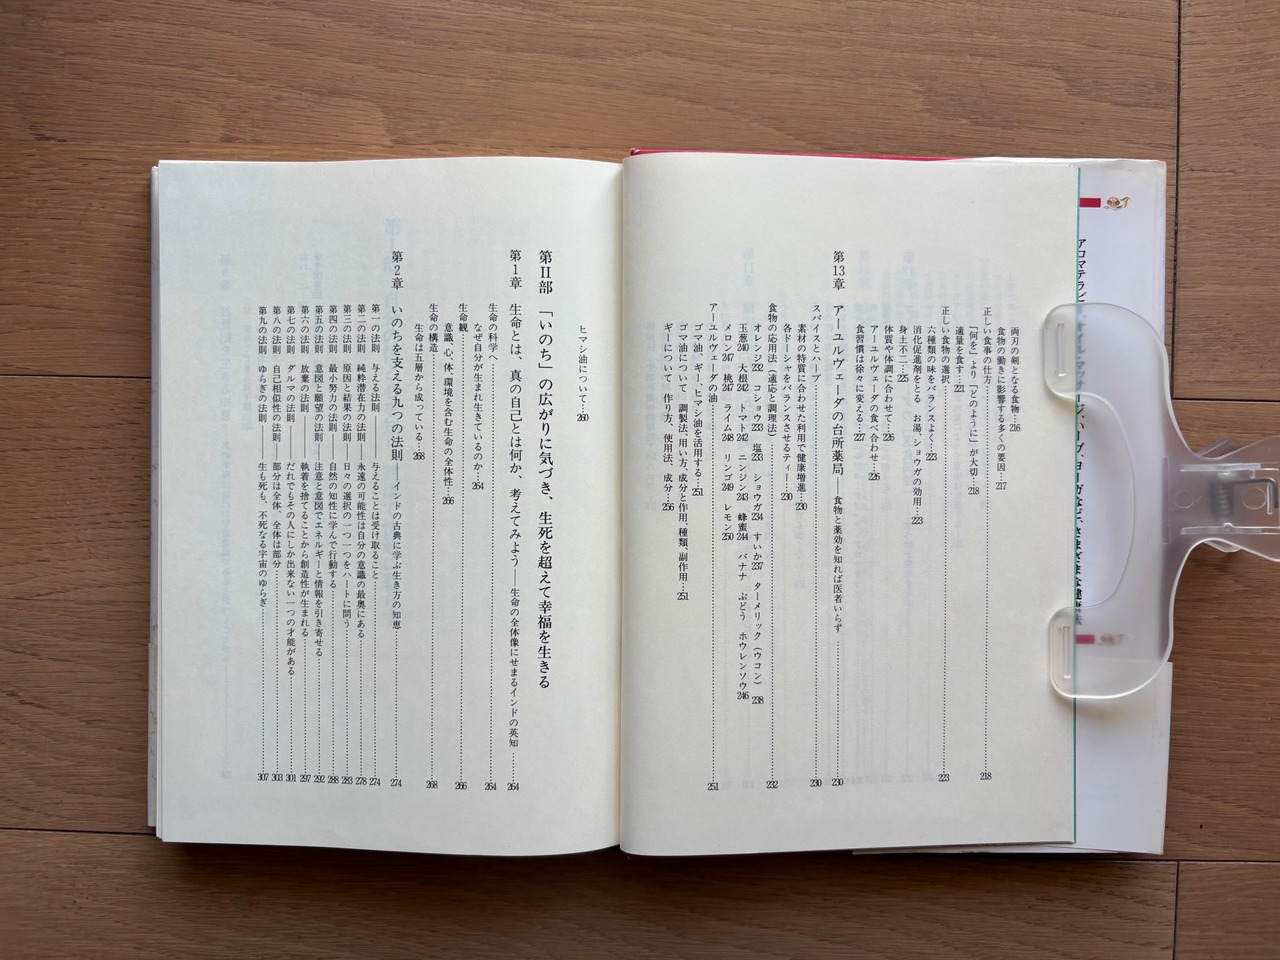 両刃の剣となる食物…216
食物の働きに影響する多くの要因…217
正しい食事の仕方……218
「何を」より「どのように」が大切…218
適量を食す…221
正しい食物の選択……223
六種類の味をバランスよく…223
消化促進剤をとる お湯、ショウガの効用…223
身土不二…225
体質や体調に合わせて…226
アーユルヴェーダの食べ合わせ…226
食習慣は徐々に変える…227
第13章 アーユルヴェーダの台所薬局——食物と薬効を知れば医者いらず……230
スパイスとハーブ……230
素材の特質に合わせた利用で健康増進…230
各ドーシャをバランスさせるティー…230
食物の応用法(適応と調理法)……232
オレンジ232 コショウ233 塩233 ショウガ234 すいか237 ターメリック(ウコン)238
玉葱240 大根242 トマト242 ニンジン243 蜂蜜244 バナナ ぶどう ホウレンソウ246
メロン247 桃247 ライム248 リンゴ249 レモン250
アーユルヴェーダの油……251
ゴマ油、ギー、ヒマシ油を活用する…251
ゴマ油について 調製法、用い方、成分と作用、種類、副作用…251
ギーについて 作り方、使用法、成分…256
ヒマシ油について…260
第II部 「いのち」の広がりに気づき、生死を超えて幸福を生きる
第1章 生命とは、真の自己とは何か、考えてみよう——生命の全体像にせまるインドの英知……264
生命の科学へ……264
なぜ自分が生まれ生きているのか…264
生命観……266
意識、心、体、環境を含む生命の全体性…266
生命の構造……268
生命は五層から成っている…268
第2章 いのちを支える九つの法則——インドの古典に学ぶ生き方の知恵……274
第一の法則 与える法則——与えることは受け取ること……274
第二の法則 純粋潜在力の法則——永遠の可能性は自分の意識の最奥にある……278
第三の法則 原因と結果の法則——日々の選択の一つ一つをハートに問う……283
第四の法則 最小努力の法則——自然の知性に学んで行動する……288
第五の法則 意図と願望の法則——注意と意図でエネルギーと情報を引き寄せる……292
第六の法則 放棄の法則——執着を捨てることから創造性が生まれる……297
第七の法則 ダルマの法則——だれでもその人にしか出来ない一つの才能がある……301
第八の法則 自己相似性の法則——部分は全体、全体は部分……303
第九の法則 ゆらぎの法則——生も死も、不死なる宇宙のゆらぎ……307